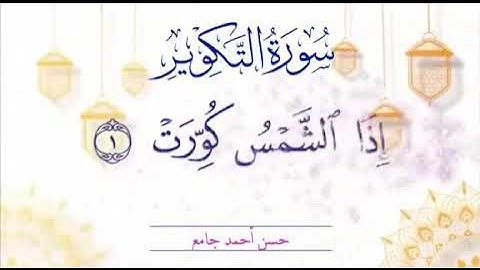 سُورَةُ التَّكْوِيرِ
إِذَا ٱلشَّمْسُ كُوِّرَتْ ١
حسن أحمد جامع